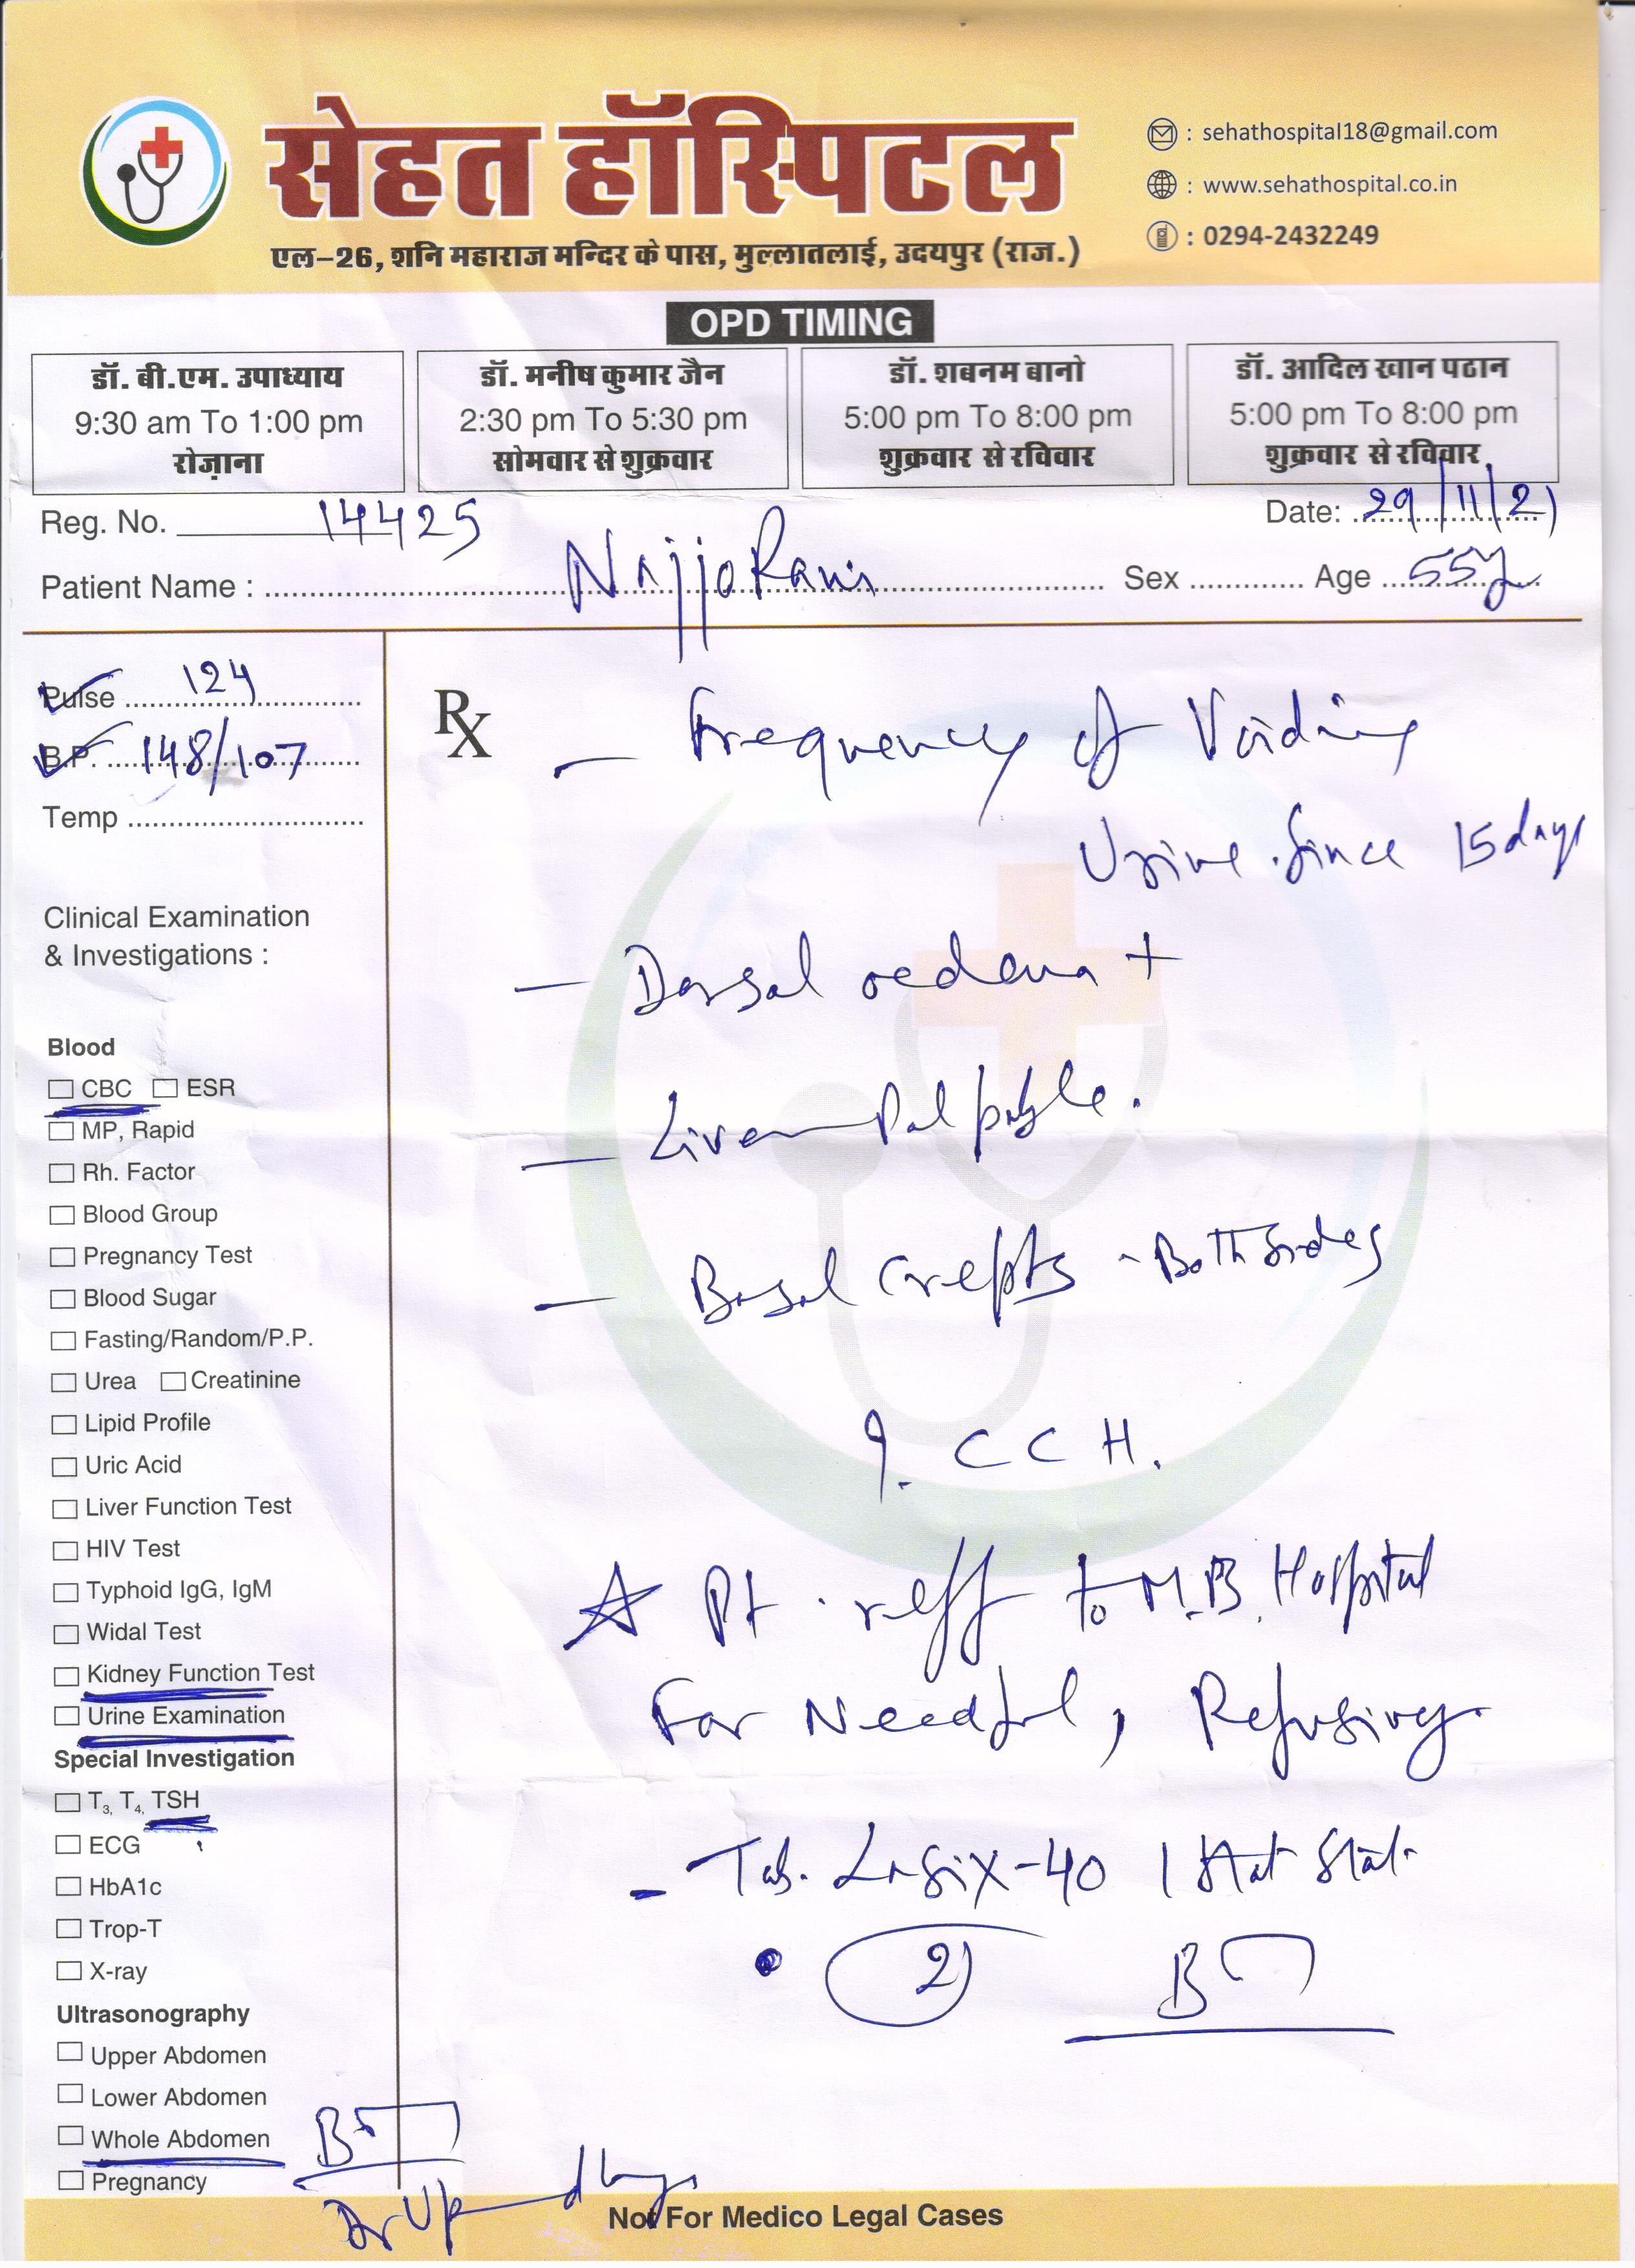 सेहत हॉस्पिटल
एल-26, शनि महाराज मन्दिर के पास, मुल्लातलाई, उदयपुर (राज.)
: sehathospital18@gmail.com
: www.sehathospital.co.in
: 0294-2432249
OPD TIMING
डॉ. बी.एम. उपाध्याय
9:30 am To 1:00 pm
रोज़ाना
डॉ. मनीष कुमार जैन
2:30 pm To 5:30 pm
सोमवार से शुक्रवार
डॉ. शबनम बानो
5:00 pm To 8:00 pm
शुक्रवार से रविवार
डॉ. आदिल खान पठान
5:00 pm To 8:00 pm
शुक्रवार से रविवार
Reg. No. 14425 Date: 29/11/21
Patient Name : Najjo Rani Sex Age 55y
Pulse 124
B.P. 148/107
Temp
Clinical Examination
& Investigations :
Blood
CBC ESR
MP, Rapid
Rh. Factor
Blood Group
Pregnancy Test
Blood Sugar
Fasting/Random/P.P.
Urea Creatinine
Lipid Profile
Uric Acid
Liver Function Test
HIV Test
Typhoid IgG, IgM
Widal Test
Kidney Function Test
Urine Examination
Special Investigation
T3, T4, TSH
ECG
HbA1c
Trop-T
X-ray
Ultrasonography
Upper Abdomen
Lower Abdomen
Whole Abdomen
Pregnancy
Rx
- Frequency of Voiding
Urine Since 15 days
- Dorsal oedema +
- Liver Palpable.
- Basal Crepts - Both Sides
?. C C H.
☆ Pt. reff to M.B. Hospital
For Needful, Refusing.
- Tab. Lasix-40 1 Stat Stat.
2)
Dr Upadhyay
Not For Medico Legal Cases